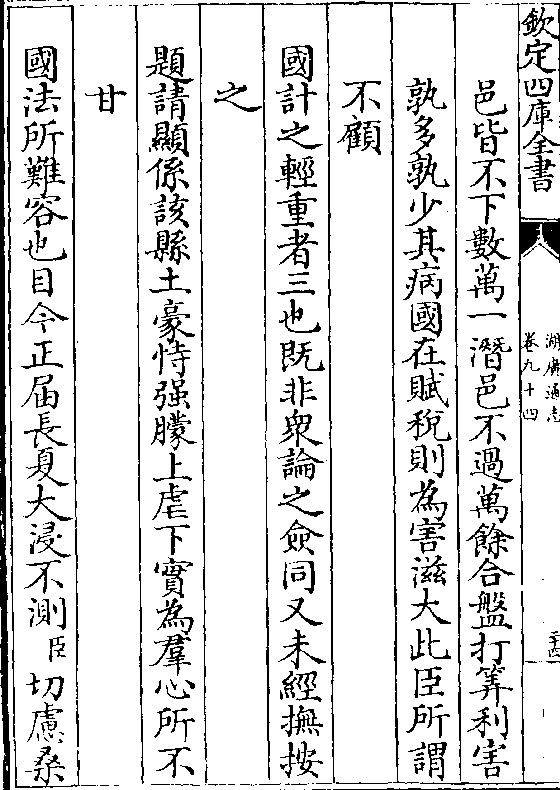 欽定四庫全書
湖廣通志
卷九十四
二十四
邑皆不下數萬一潛邑不過萬餘合盤打筭利害
孰多孰少其病國在賦稅則為害滋大此臣所謂
不顧
國計之輕重者三也既非衆論之僉同又未經撫按
之
題請顯係該縣土豪恃强朦上虐下實為羣心所不
甘
國法所難容也目今正届長夏大浸不測臣切慮桑